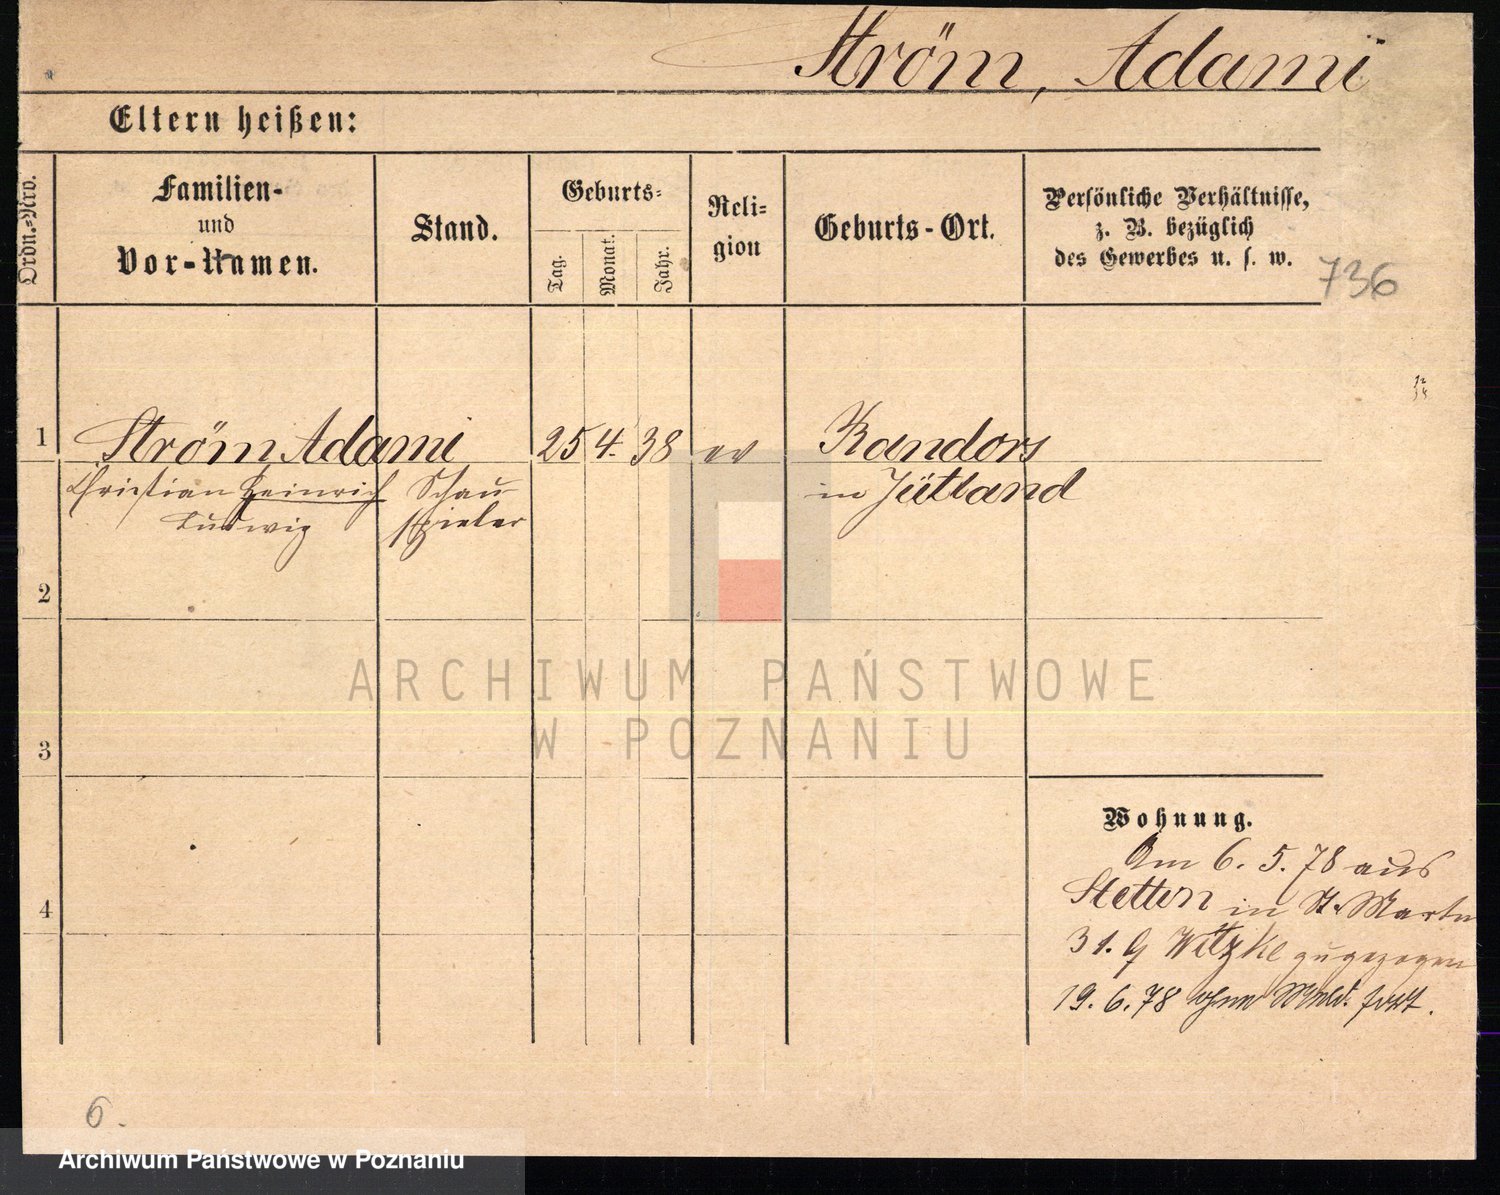 Ström, Adami
Eltern heißen:
Ordn.-Nro.
Familien-
und
Vor-Namen.
Stand.
Geburts-
Tag.
Monat.
Jahr.
Reli-
gion
Geburts-Ort.
Persönliche Verhältnisse,
z. B. bezüglich
des Gewerbes u. s. w.
736
1
Ström Adami
25 4. 38 ev
Randors
Christian Heinrich
Schau-
in Jütland
Ludwig
spieler
2
3
4
Wohnung.
Am 6. 5. 78 aus
Stettin in St. Martin
31. Witzke zugezogen
19. 6. 78 ohne Meld. fort.
6.
ARCHIWUM PAŃSTWOWE
W POZNANIU
Archiwum Państwowe w Poznaniu